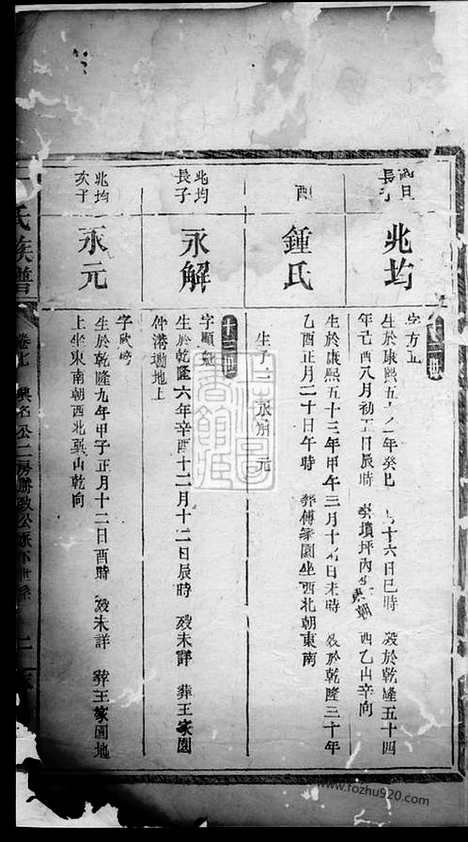 長子
兆均
字方
生於康熙五十二年癸巳 月十六日巳時 殁於乾隆五十四
年己酉八月初 日辰時 葬墳坪內 東朝西乙山辛向
配
鍾氏
生於康熙五十三年甲午三月十 日未時 殁於乾隆三十年
乙酉正月二十日午時 葬傅家園坐西北朝東南
生子二 永解 元
十三世
兆均
長子
永解
字順
生於乾隆六年辛酉十二月十二日辰時 殁未詳 葬王家園
仲港塝地上
兆均
次子
永元
字欣
生於乾隆九年甲子正月十二日酉時 殁未詳 葬王家園地
上坐東南朝西北巽山乾向
氏族譜
卷七
www.fozhu920.com